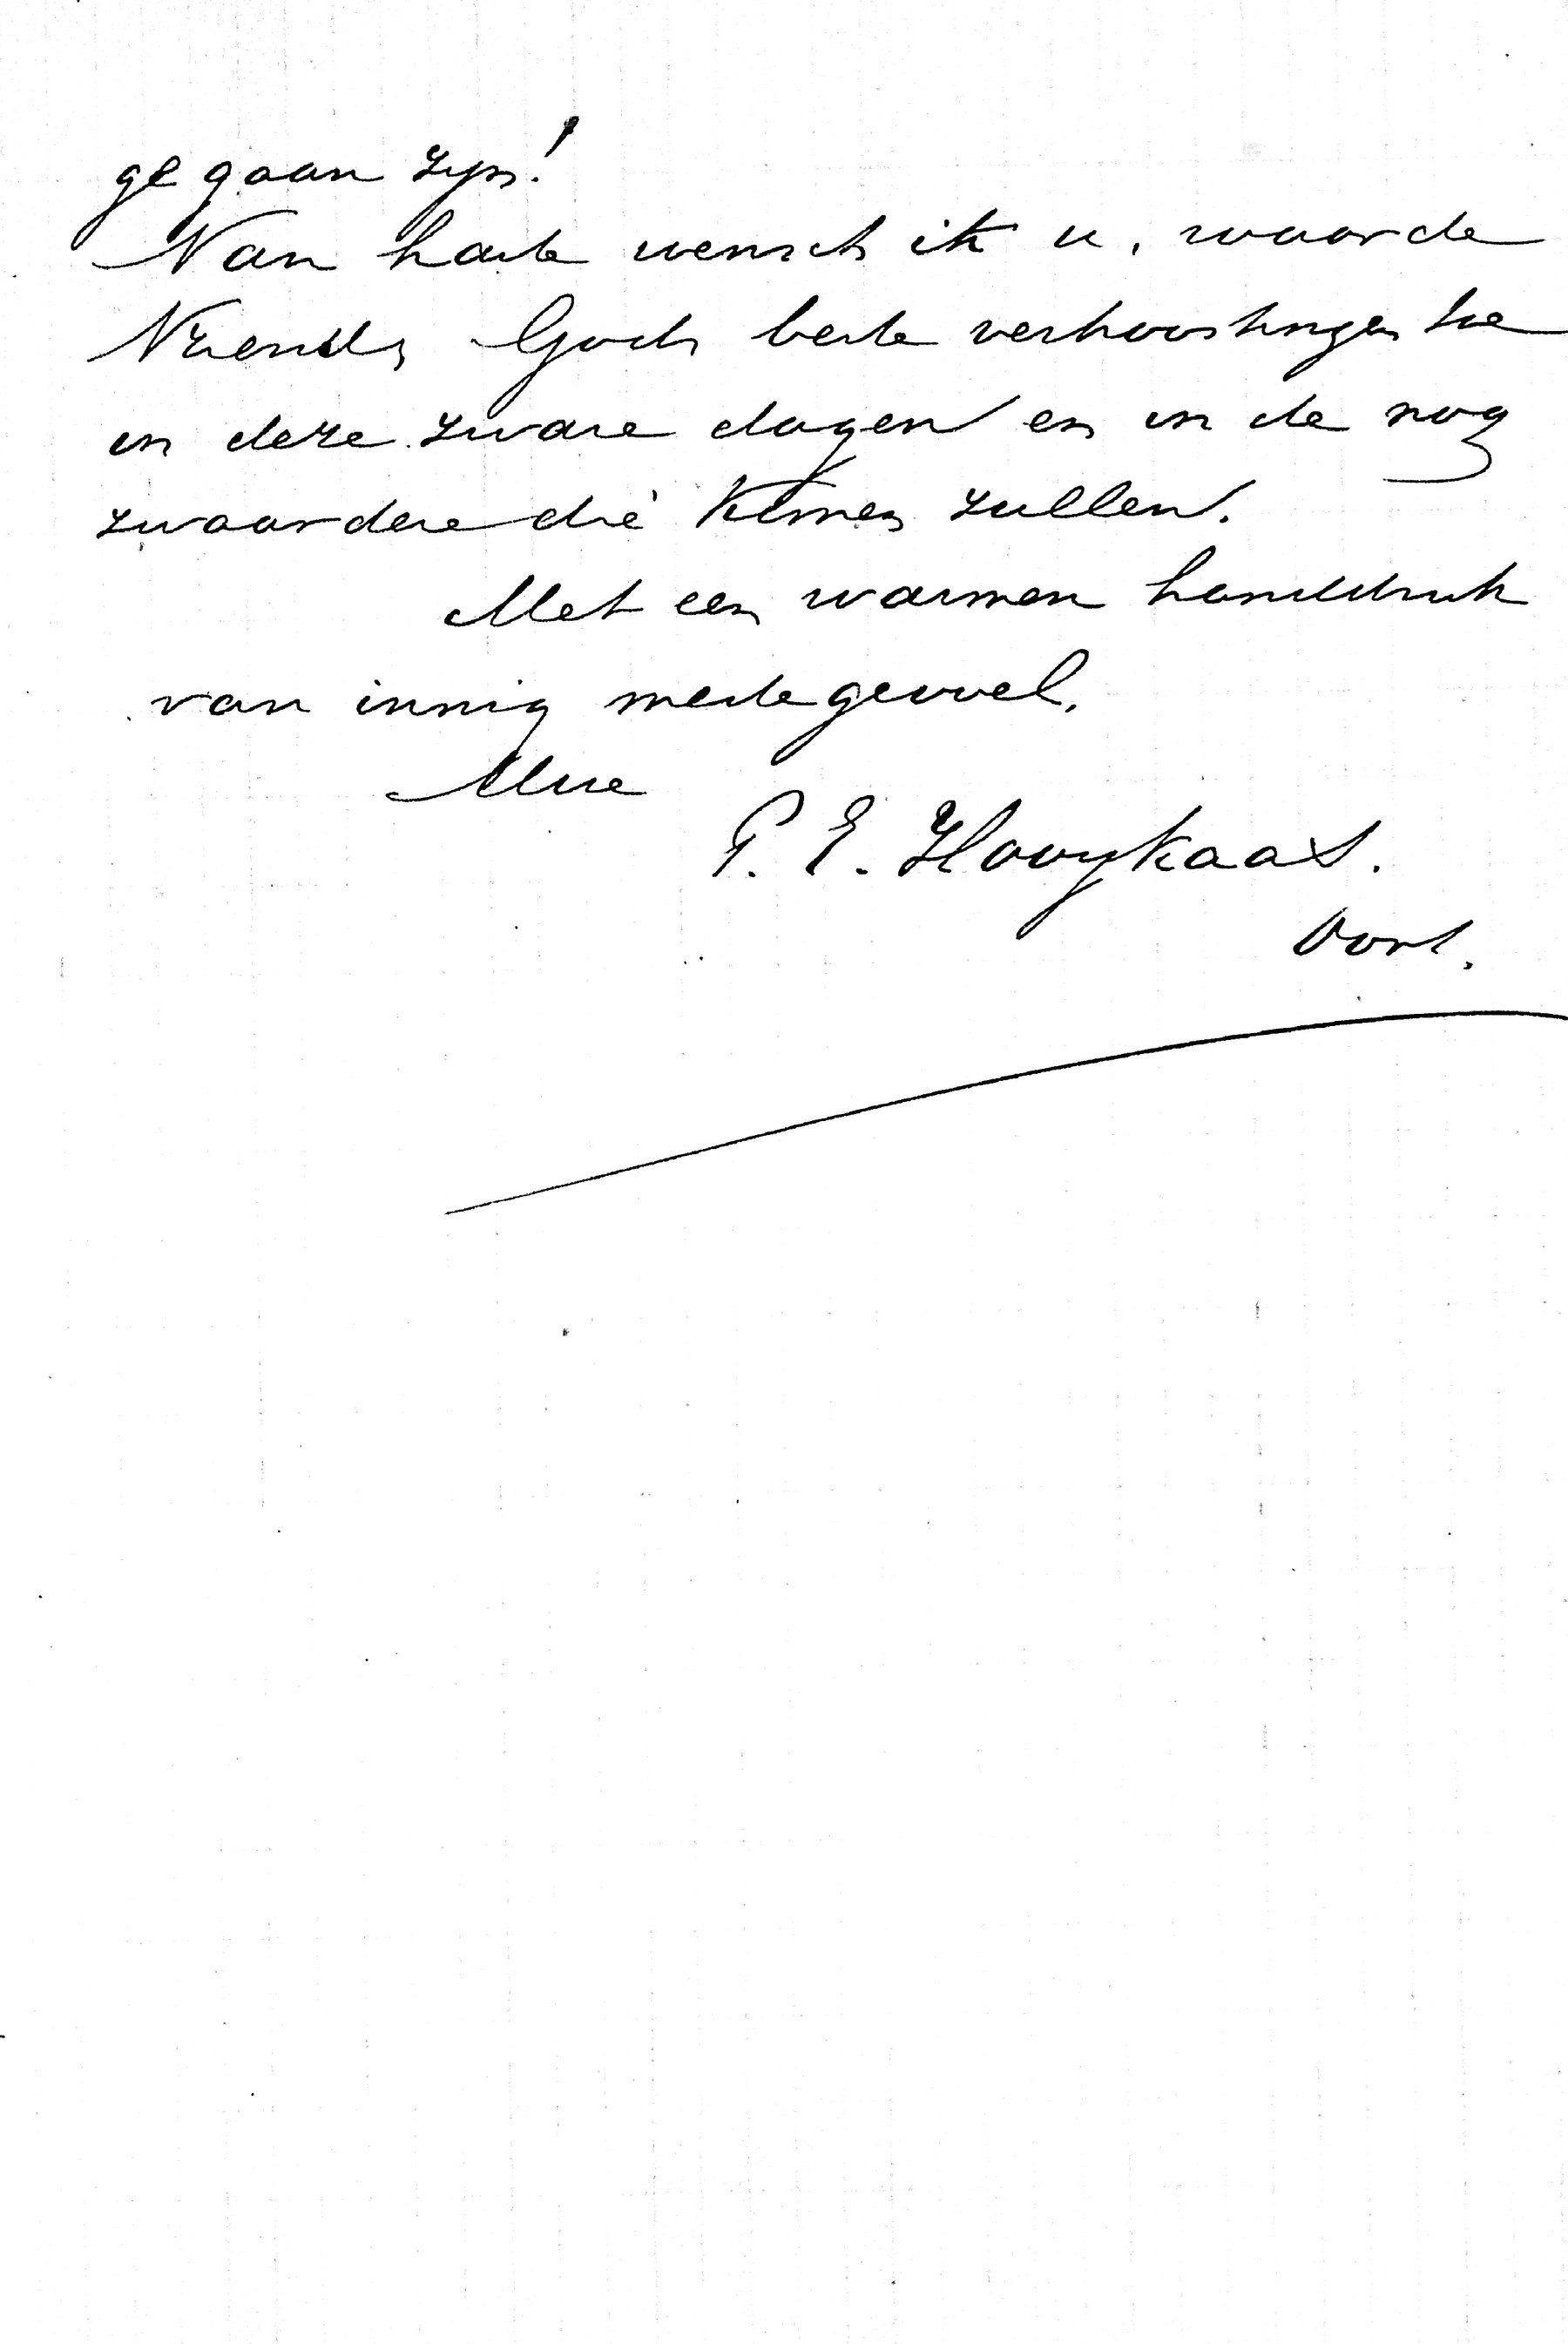 gegaan zijn!
Van harte wensch ik u, waarde
Vriend, Gods beste vertroostingen toe
in deze zware dagen en in de nog
zwaardere die komen zullen.
Met een warmen handdruk
van innig medegevoel,
Uwe
P. E. Hooykaas.
Oort.